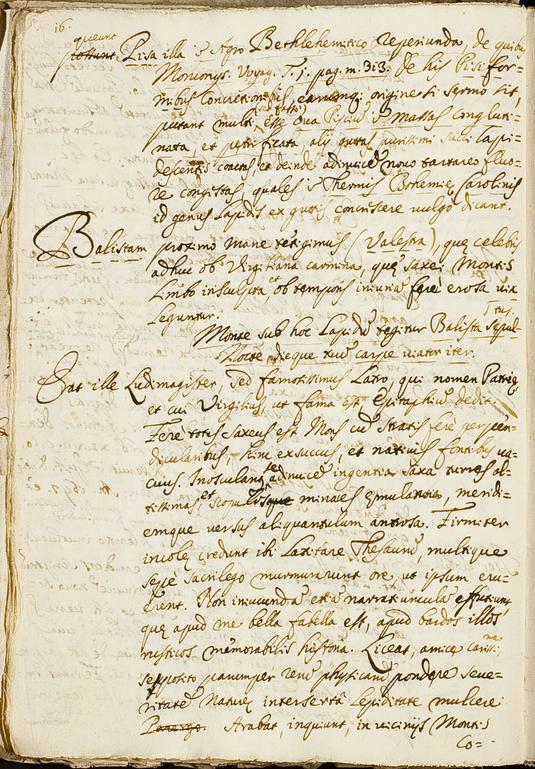 16.
queunt
possunt Pisa illa in Agro Bethlehemitico reperiunda, de quibus
Monconys. Voyag. T. j. pag. m. 313. de his Pisifor=
mibus Concretionibus, origine si sermo sit,
putant multi, esse Ova Piscium in massas conglutinata,
nata, et petrificata, alij guttas purissimi succi lapi=
descentis coactas et deinde adinvicem novo tartareo fluo=
re congestas, quales in Thermis Bohemiæ Carolinis
id genus Lapidis ex guttis concrescere vulgo dicunt.
Balistam proximo mane tetigimus (Valestra) quæ celebris
adhuc ob Virgiliana carmina, quæ saxei Montis
Limbo insculpta et ob temporis iniuriam fere erosa vix
Leguntur.
Monte sub hoc Lapidum tegitur Balista Sepul=
trus.
Nocte dieque tuum carpe viator iter.
Erat ille Ludimagister, sed famosissimus Latro, qui nomen Patriæ
et cui Virgilius, ut fama est, Epitaphium dedit.
Fere totus Saxeus est Mons cum Stratis fere perpen=
dicularibus hinc exsuccus, et nativis fontibus va=
cuus. Inosculant se adinvicem ingentia Saxa turres al=
tissimas, et scopulosque minaces æmulantia, meridi=
emque versus aliquantulum antrosa. Firmiter
incolæ credunt ibi Latitare Thesaurum, multique
sepe sacrilego murmurarunt ore, ut ipsum eru=
erent. Non iniucunda est narratiuncula effutiunt
quæ apud me bella fabella est, apud bardos illos
rusticos memorabilis historia. Liceat, amice cariss:me
seposito parumper rerum physicarum pondere seve=
ritatem Naturæ interserta Lepiditate mulcere
Arabat, inquiunt, in vicinijs Montis
Co=